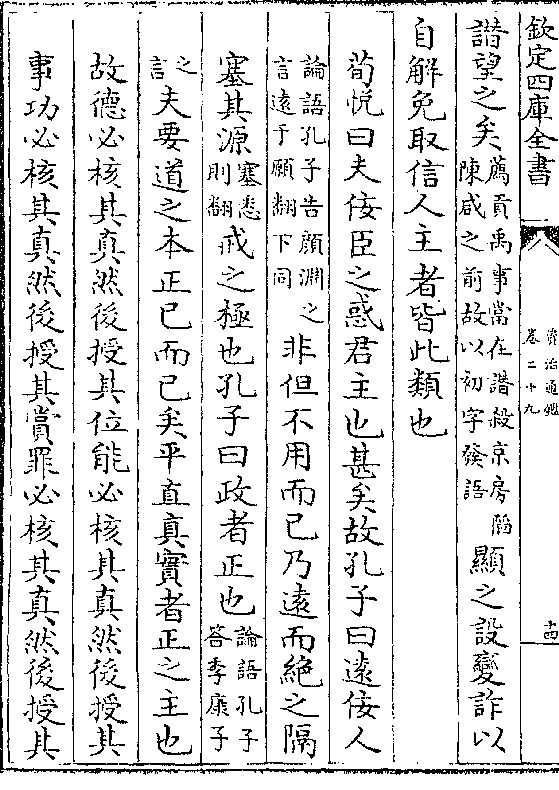 欽定四庫全書
資治通鑑
卷二十九
十四
譖望之矣薦貢禹事當在譖殺京房陷陳咸之前故以初字發語顯之設變詐以
自解免取信人主者皆此類也
荀悅曰夫佞臣之惑君主也甚矣故孔子曰遠佞人
論語孔子告顔淵之言遠于願翻下同非但不用而已乃遠而絶之隔
塞其源塞悉則翻戒之極也孔子曰政者正也論語孔子答季康子
之言夫要道之本正已而已矣平直真實者正之主也
故德必核其真然後授其位能必核其真然後授其
事功必核其真然後授其賞罪必核其真然後授其